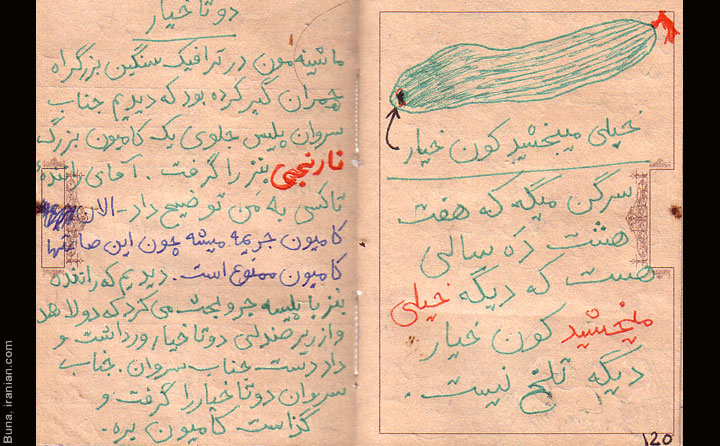 دو تا خیار
ماشینه مون در ترافیک سنگین بزرگراه
چمران گیر کرده بود که دیدیم جناب
سروان پلیس جلوی یک کامیون بزرگ
نارنجی بنز را گرفت. آقای رانندۀ
تاکسی به من توضیح داد - الان
کامیون جریمه میشه چون این ساعتها
کامیون ممنوع است. دیدیم که راننده
بنز با پلیسه جر و بحث می کرد که دولا شد
و از زیر صندلی دو تا خیار ورداشت و
داد دست جناب سروان. جناب
سروان دو تا خیار را گرفت و
گذاشت کامیون بره.
خیلی میبخشید کون خیار
سرگن میگه که هفت
هشت ده سالی
هست که دیگه خیلی
میبخشید کون خیار
دیگه تلخ نیست.
120
Buna, iranian.com